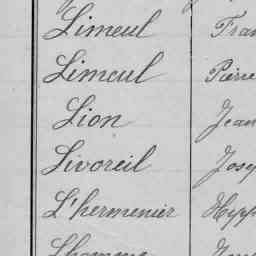 Limeul Fran
Limeul Pierre
Lion Jean
Livoreil Jose
L'hermenier Hypp
Lhomme